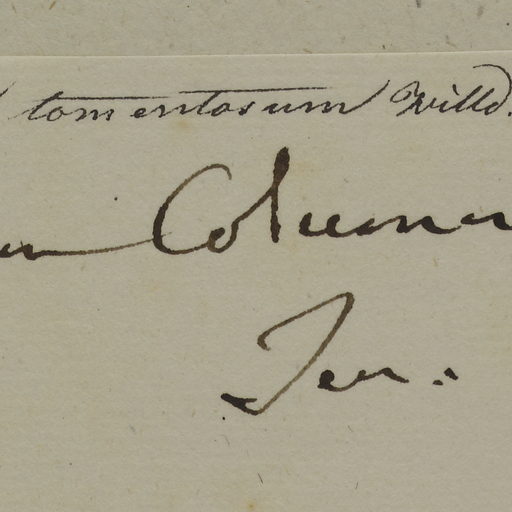 tomentosum Willd.
Column
Ten: